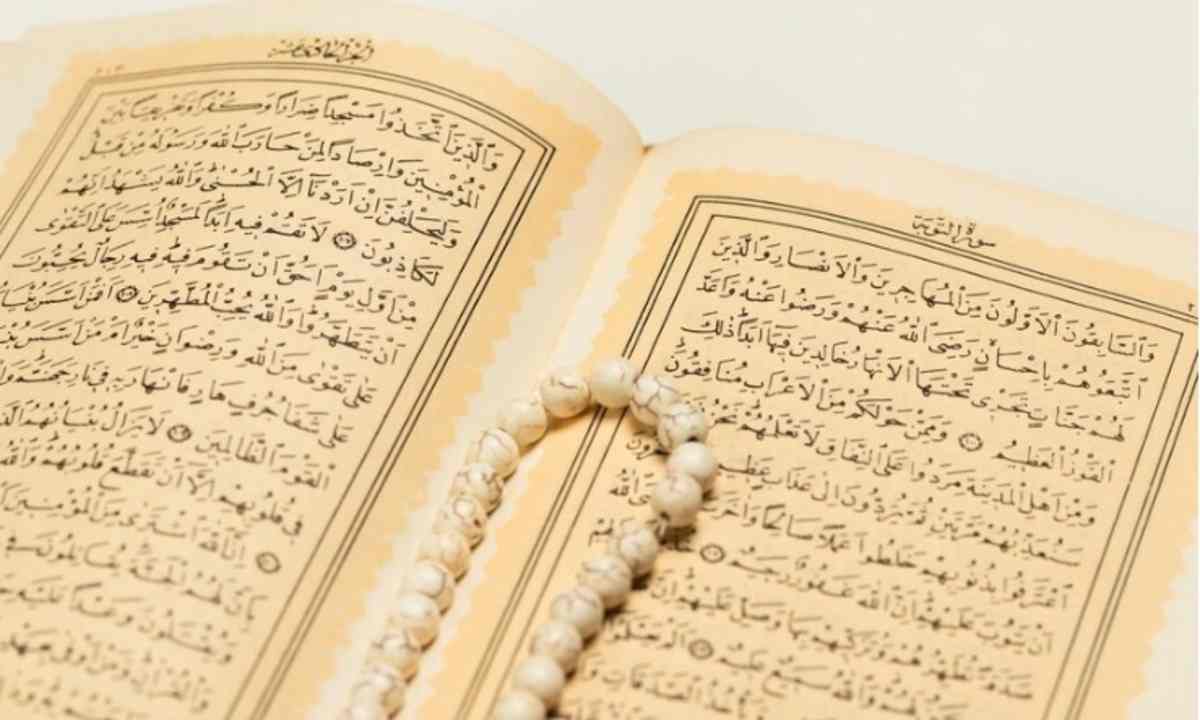 سورة التوبة
وَالسَّابِقُونَ الْاَوَّلُونَ مِنَ الْمُهَاجِرِينَ وَالْاَنْصَارِ وَالَّذِينَ
اتَّبَعُوهُمْ بِاِحْسَانٍ رَضِيَ اللّٰهُ عَنْهُمْ وَرَضُوا عَنْهُ وَاَعَدَّ
لَهُمْ جَنَّاتٍ تَجْرِى تَحْتَهَا الْاَنْهَارُ خَالِدِينَ فِيهَا اَبَداً ذٰلِكَ
الْفَوْزُ الْعَظِيمُ وَمِمَّنْ حَوْلَكُمْ مِنَ الْاَعْرَابِ مُنَافِقُونَ
وَمِنْ اَهْلِ الْمَدِينَةِ مَرَدُوا عَلَى النِّفَاقِ لَا تَعْلَمُهُمْ نَحْنُ
سَنُعَذِّبُهُمْ مَرَّتَيْنِ ثُمَّ يُرَدُّونَ اِلٰى عَذَابٍ عَظِيمٍ
اعْتَرَفُوا بِذُنُوبِهِمْ خَلَطُوا عَمَلاً صَالِحاً وَاٰخَرَ اللّٰهُ
اَنْ يَتُوبَ عَلَيْهِمْ اِنَّ اللّٰهَ غَفُورٌ رَحِيمٌ
صَدَقَةً تُطَهِّرُهُمْ وَتُزَكِّيهِمْ بِهَا وَصَلِّ عَلَيْهِمْ اِنَّ
وَاللّٰهُ سَمِيعٌ عَلِيمٌ
الجزء الحادى عشر
وَالَّذِينَ اتَّخَذُوا مَسْجِداً ضِرَاراً وَكُفْراً وَتَفْرِيقاً بَيْنَ
الْمُؤْمِنِينَ وَاِرْصَاداً لِمَنْ حَارَبَ اللّٰهَ وَرَسُولَهُ مِنْ قَبْلُ
وَلَيَحْلِفُنَّ اِنْ اَرَدْنَا اِلَّا الْحُسْنٰى وَاللّٰهُ يَشْهَدُ اِنَّهُمْ
لَكَاذِبُونَ لَا تَقُمْ فِيهِ اَبَداً لَمَسْجِدٌ اُسِّسَ عَلَى التَّقْوٰى
مِنْ اَوَّلِ يَوْمٍ اَحَقُّ اَنْ تَقُومَ فِيهِ فِيهِ رِجَالٌ يُحِبُّونَ
اَنْ يَتَطَهَّرُوا وَاللّٰهُ يُحِبُّ الْمُطَّهِّرِينَ اَفَمَنْ اَسَّسَ بُنْيَانَهُ
عَلٰى تَقْوٰى مِنَ اللّٰهِ وَرِضْوَانٍ خَيْرٌ اَمْ مَنْ اَسَّسَ
عَلٰى شَفَا جُرُفٍ هَارٍ فَانْهَارَ بِهِ فِى نَارِ جَهَنَّمَ وَاللّٰهُ
الْقَوْمَ الظَّالِمِينَ لَا يَزَالُ بُنْيَانُهُمُ الَّذِى
فِى قُلُوبِهِمْ اِلَّا اَنْ تَقَطَّعَ قُلُوبُهُمْ وَاللّٰهُ
اِنَّ اللّٰهَ اشْتَرٰى مِنَ الْمُؤْمِنِينَ
بِاَنَّ لَهُمُ الْجَنَّةَ يُقَاتِلُونَ
وَيُقْتَلُونَ وَعْداً عَلَيْهِ